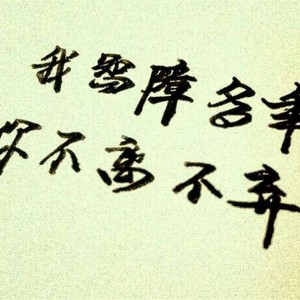 我智障多年
你不离不弃